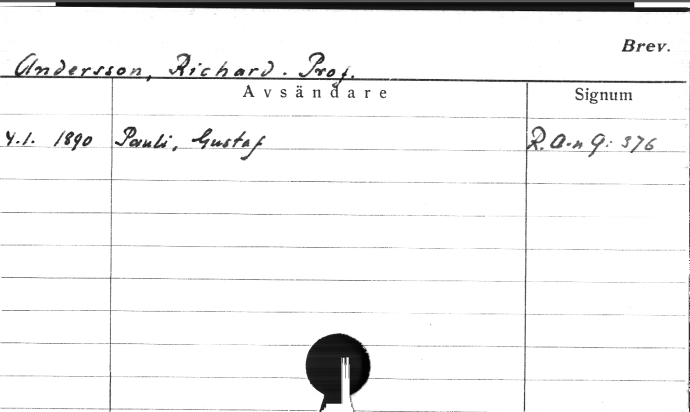 Brev.
Andersson, Richard. Prof.
Avsändare Signum
4.1. 1890 Pauli, Gustaf R.A.n 9: 376